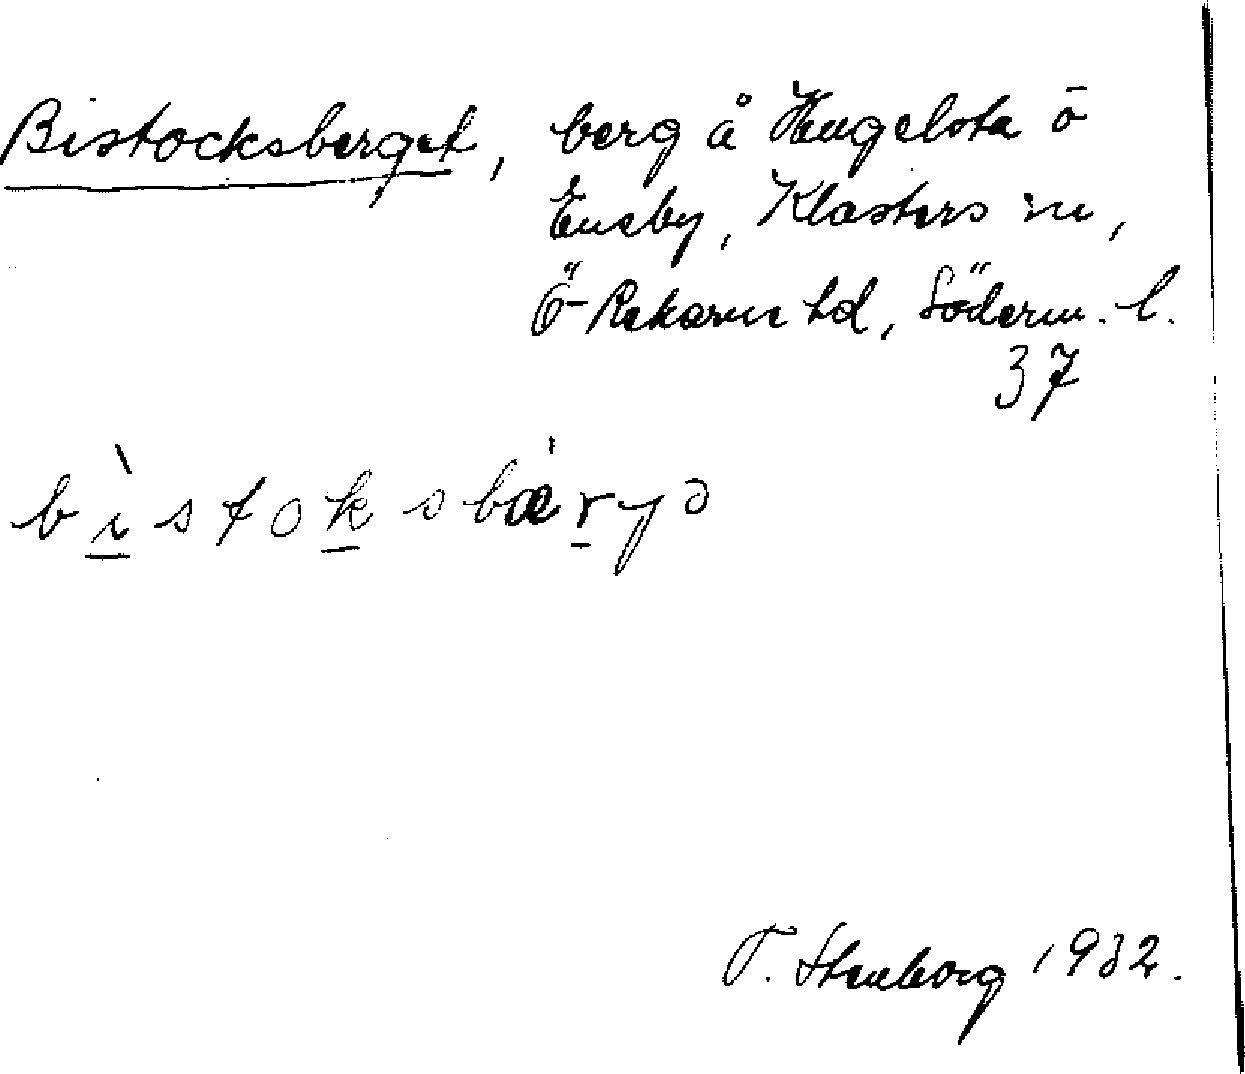 Bistocksberget, berg å Hugelsta ö
Eneby, Klosters sn,
Ö-Rekarne hd, Söderm. l.
37
bìstoksbæ̍ryə
T. Stenborg 1932.